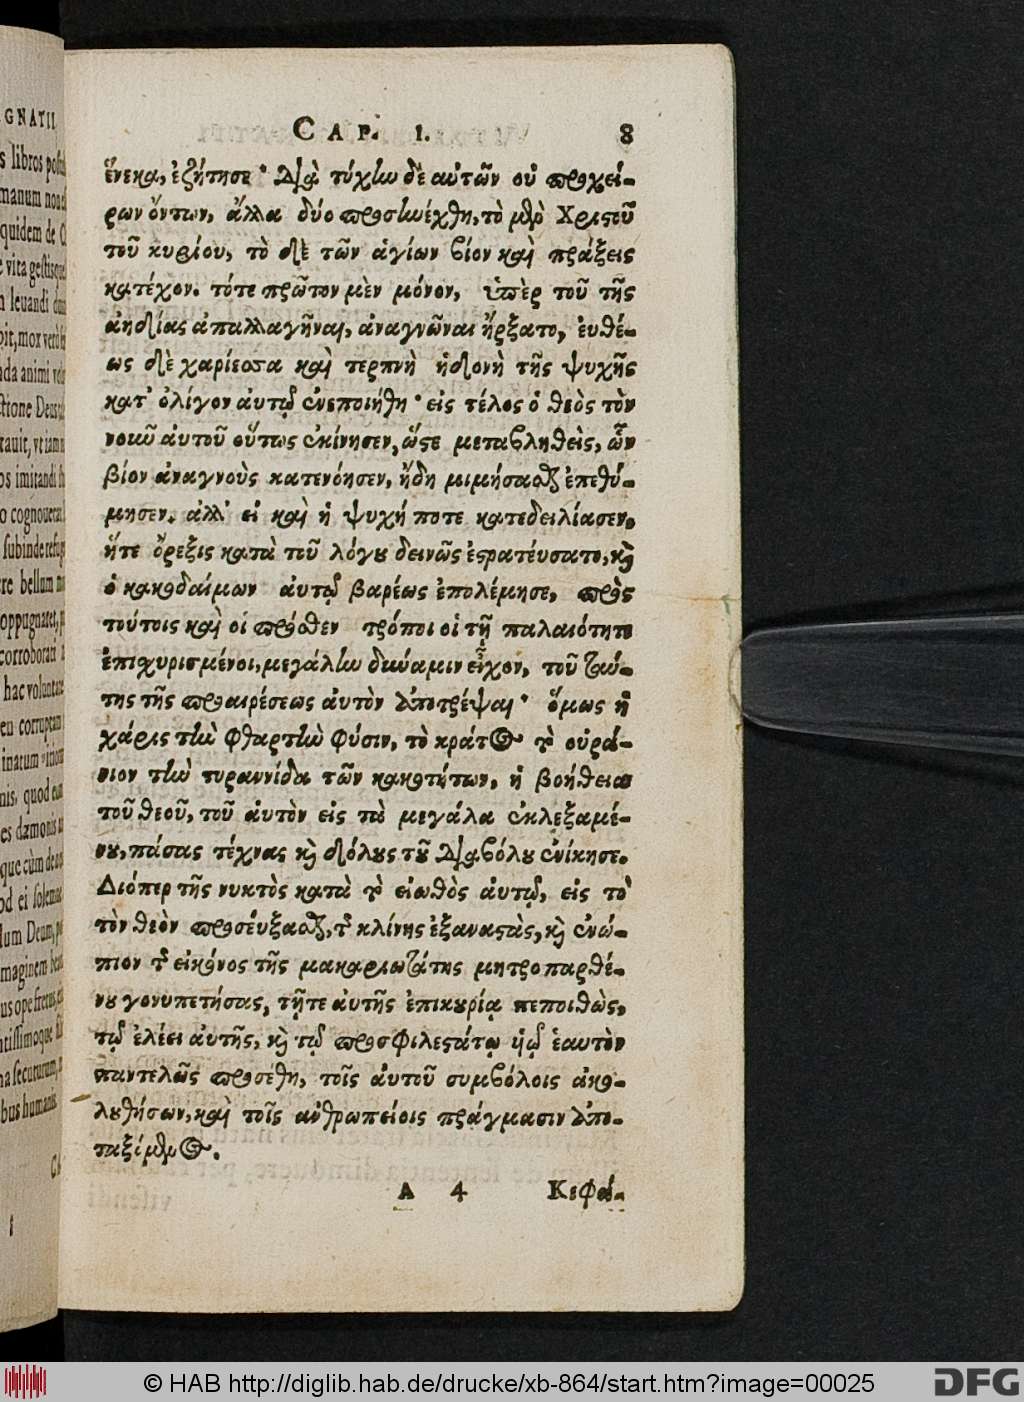 GNATII
s libros post
manum non
quidem de C
e vita gestisque
n leuandi
bit, mox verò
nda animi
ctione Deus
tauit, vt iam
os imitandi
o cognouerat
subinde refug
ere bellum
oppugnaret,
corroborati
hac voluntate
en corruptam
inatum
nis, quod eum
es dæmonis
que cùm de
od ei solemne
lum Deum,
maginem beat
us ope fretus,
ntissimoque
na secuturum,
bus humanis
CAP. I. 8
ἕνεκα, ἐζήτησε· Διὰ τύχην δὲ αὐτῶν οὐ προχεί-
ρων ὄντων, ἄλλα δύο προσηνέχθη, τὸ μὲν Χριστοῦ
τοῦ κυρίου, τὸ δὲ τῶν ἁγίων βίον καὶ πράξεις
κατέχον. τότε πρῶτον μὲν μόνον, ὑπὲρ τοῦ τῆς
ἀηδίας ἀπαλλαγῆναι, ἀναγνῶναι ἤρξατο, εὐθέ-
ως δὲ χαρίεσσα καὶ τερπνὴ ἡδονὴ τῆς ψυχῆς
κατ' ὀλίγον αὐτῷ ἐνεποιήθη· εἰς τέλος ὁ θεὸς τὸν
νοῦν αὐτοῦ οὕτως ἐκίνησεν, ὥστε μεταβληθεὶς, ὧν
βίον ἀναγνοὺς κατενόησεν, ἤδη μιμήσασθαι ἐπεθύ-
μησεν. ἀλλ' εἰ καὶ ἡ ψυχή ποτε κατεδειλίασεν,
ἥτε ὄρεξις κατὰ τοῦ λόγου δεινῶς ἐστρατεύσατο, καὶ
ὁ κακοδαίμων αὐτῷ βαρέως ἐπολέμησε, πρὸς
τούτοις καὶ οἱ πρόσθεν τρόποι οἱ τῇ παλαιότητι
ἐπισχυρισμένοι, μεγάλην δύναμιν εἶχον, τοῦ ταύ-
της τῆς προαιρέσεως αὐτὸν ἀποτρέψαι· ὅμως ἡ
χάρις τὴν φθαρτὴν φύσιν, τὸ κράτος τὸ οὐρά-
νιον τὴν τυραννίδα τῶν κακοτήτων, ἡ βοήθεια
τοῦ θεοῦ, τοῦ αὐτὸν εἰς τὰ μεγάλα ἐκλεξαμέ-
νου, πάσας τέχνας καὶ δόλους τοῦ Διαβόλου ἐνίκησε.
Διόπερ τῆς νυκτὸς κατὰ τὸ εἰωθὸς αὐτῷ, εἰς τὸ
τὸν θεὸν προσεύξασθαι, τῆς κλίνης ἐξαναστὰς, καὶ ἐνώ-
πιον τῆς εἰκόνος τῆς μακαριωτάτης μητροπαρθέ-
νου γονυπετήσας, τῇτε αὐτῆς ἐπικουρίᾳ πεποιθὼς,
τῷ ἐλέει αὐτῆς, καὶ τῷ προσφιλεστάτῳ ὑιῷ ἑαυτὸν
παντελῶς προσέθη, τοῖς αὐτοῦ συμβόλοις ἀκο-
λουθήσων, καὶ τοῖς ἀνθρωπείοις πράγμασιν ἀπο-
ταξάμενος.
A 4 Κεφά-
© HAB http://diglib.hab.de/drucke/xb-864/start.htm?image=00025
DFG